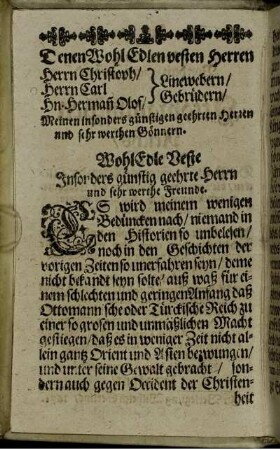 Denen Wohl Edlen vesten Herren
Herrn Christoph/
Herrn Carl
Hn. Herman̄ Olof/
Linewebern/
Gebrüdern/
Meinen insonders günstigen geehrten Herren
und sehr werthen Gönnern.
WohlEdle Veste
Insonders günstig geehrte Herrn
und sehr werthe Freunde.
ES wird meinem wenigen
Bedüncken nach/ niemand in
den Historien so unbelesen/
noch in den Geschichten der
vorigen Zeiten so unerfahren seyn/ deme
nicht bekandt seyn solte/ auß waß für ei-
nem schlechten und geringen Anfang daß
Ottomannische oder Türckische Reich zu
einer so grosen und unmäßlichen Macht
gestiegen/ daß es in weniger Zeit nicht al-
lein gantz Orient und Asien bezwungen/
und unter seine Gewalt gebracht/ son-
dern auch gegen Occident der Christen-
heit